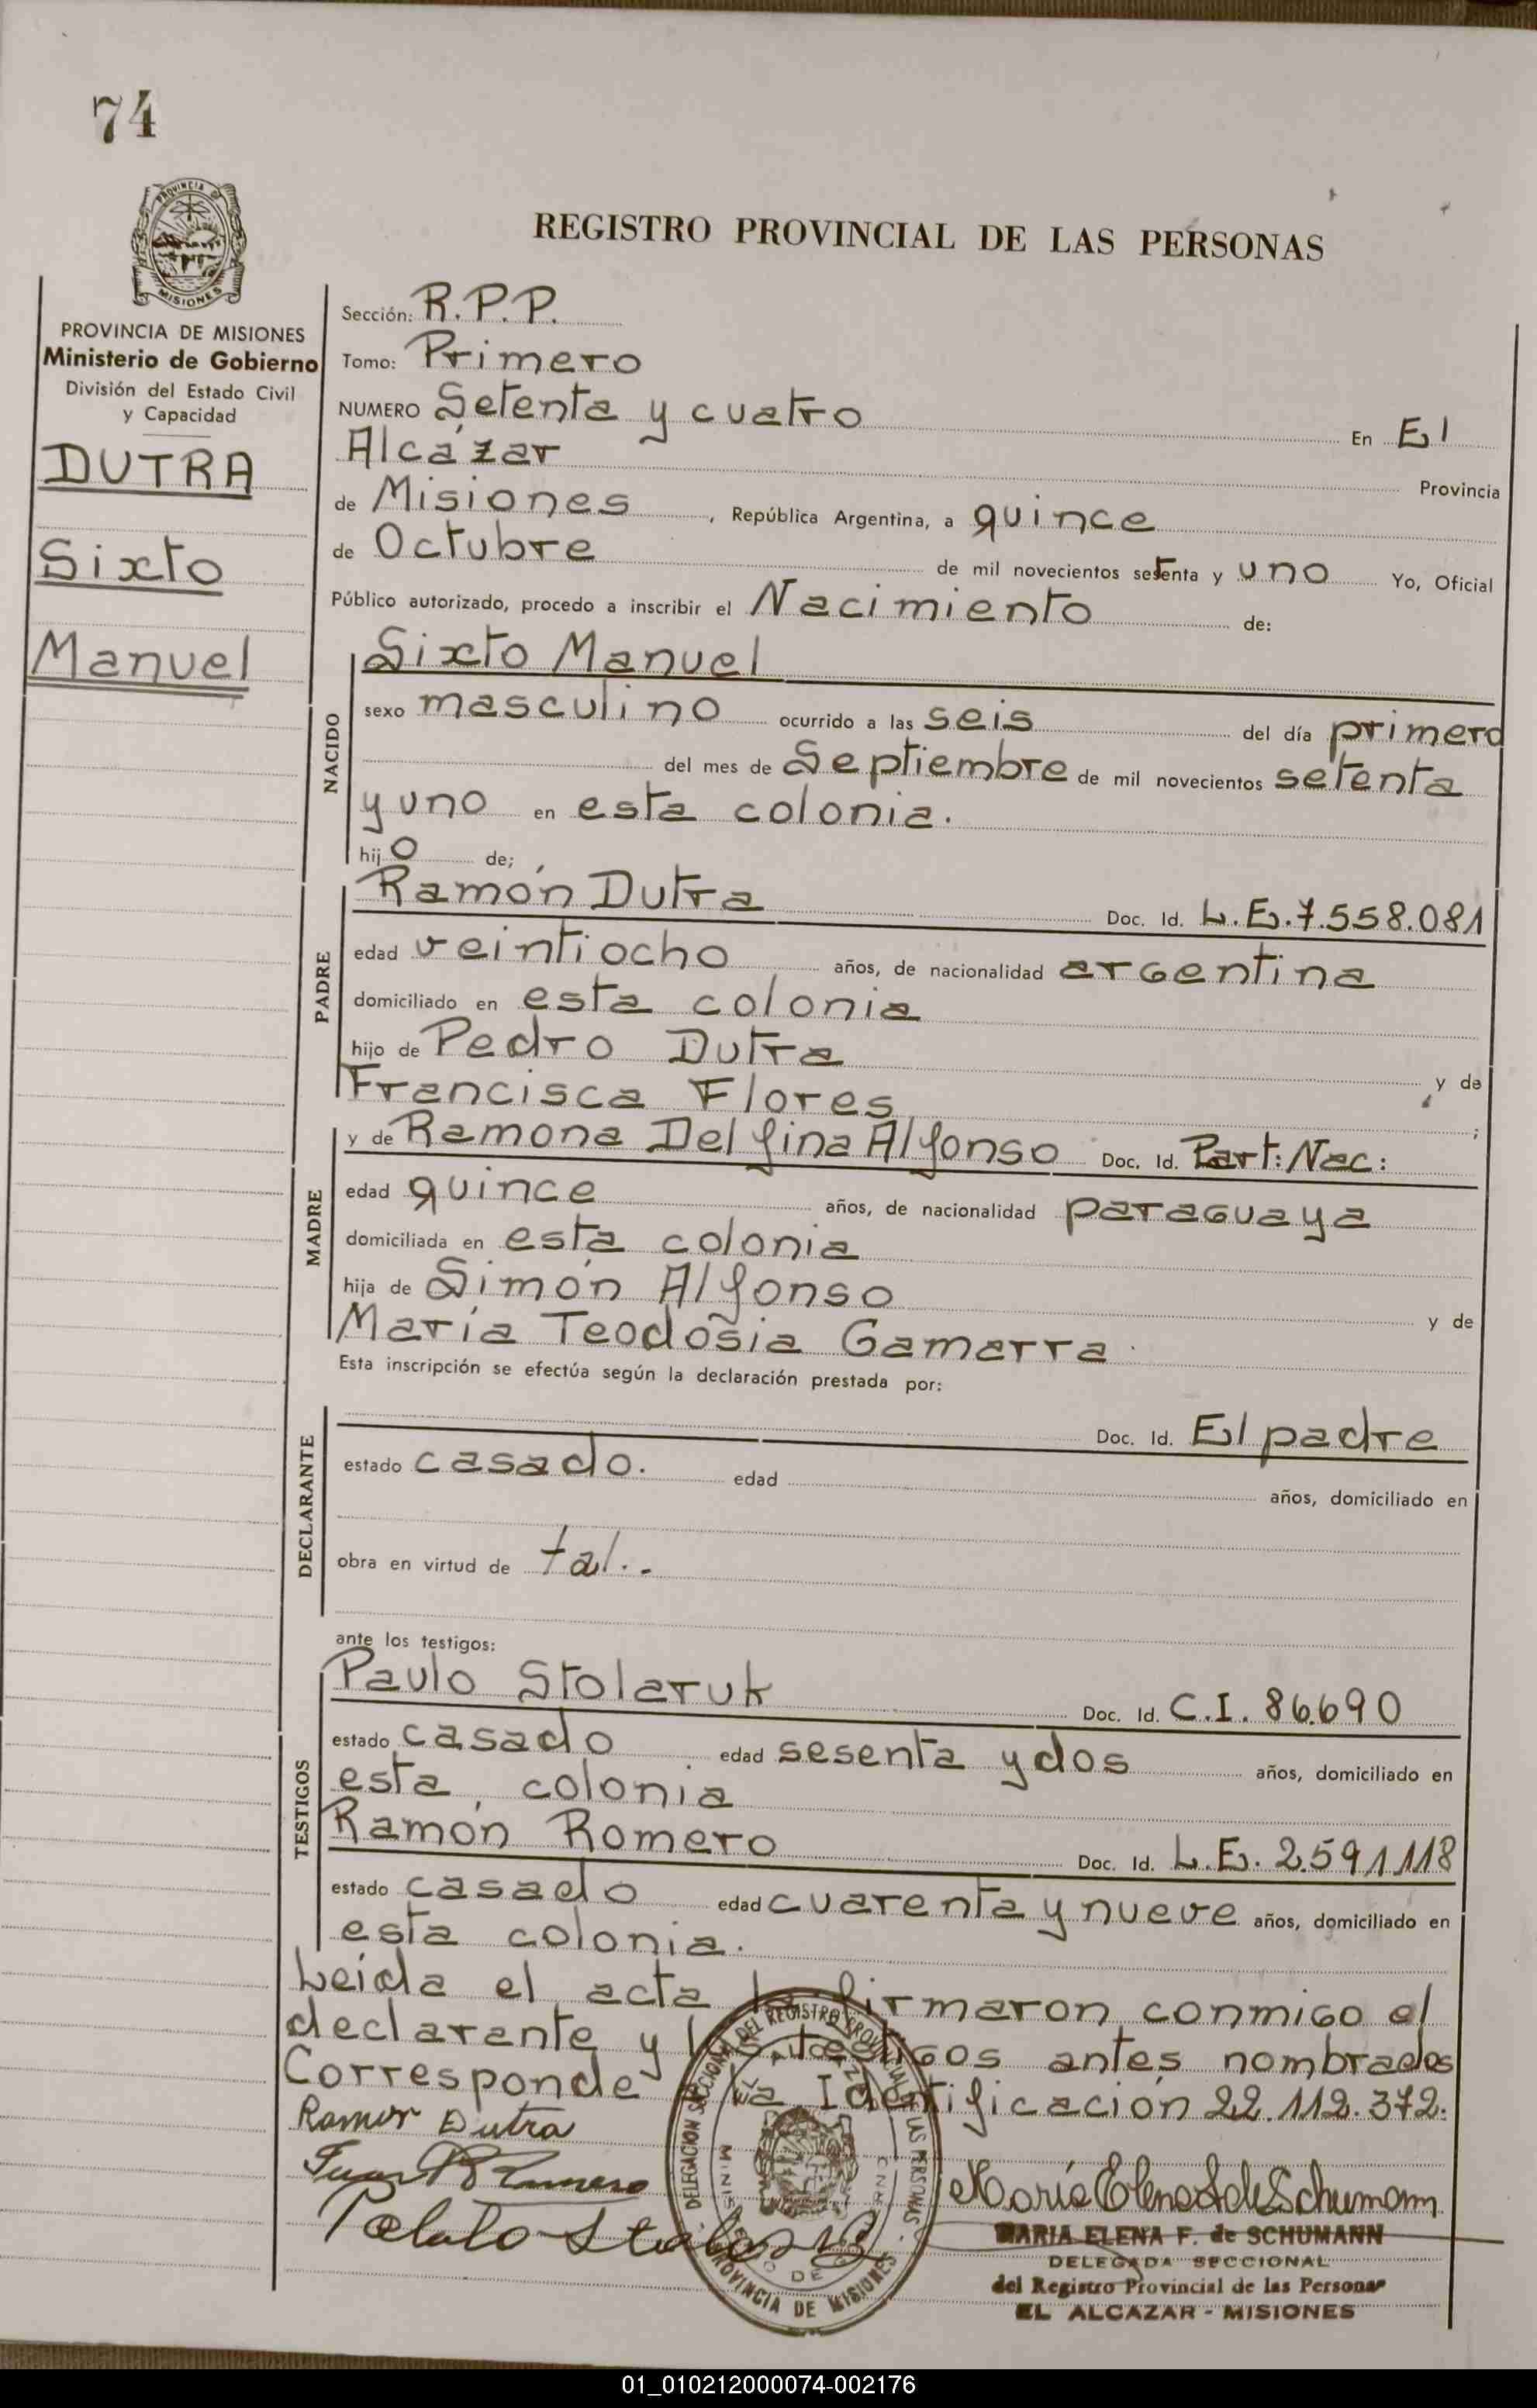 74
PROVINCIA DE
MISIONES
REGISTRO PROVINCIAL DE LAS PERSONAS
PROVINCIA DE MISIONES
Ministerio de Gobierno
División del Estado Civil
y Capacidad
DUTRA
Sixto
Manuel
Sección: R.P.P.
Tomo: Primero
NUMERO Setenta y cuatro En El
Alcázar Provincia
de Misiones, República Argentina, a quince
de Octubre de mil novecientos setenta y uno Yo, Oficial
Público autorizado, procedo a inscribir el Nacimiento de:
NACIDO
Sixto Manuel
sexo masculino ocurrido a las seis del día primero
del mes de Septiembre de mil novecientos setenta
y uno en esta colonia.
hijo de;
PADRE
Ramón Dutra Doc. Id. L.E. 7.558.081
edad veintiocho años, de nacionalidad argentina
domiciliado en esta colonia
hijo de Pedro Dutra y de
Francisca Flores ;
MADRE
y de Ramona Delfina Alfonso Doc. Id. Part: Nac:
edad quince años, de nacionalidad paraguaya
domiciliada en esta colonia
hija de Simón Alfonso y de
María Teodosia Gamarra
Esta inscripción se efectúa según la declaración prestada por:
DECLARANTE
Doc. Id. El padre
estado casado. edad años, domiciliado en
obra en virtud de tal..
ante los testigos:
TESTIGOS
Paulo Stolaruk Doc. Id. C.I. 86.690
estado casado edad sesenta y dos años, domiciliado en
esta colonia
Ramón Romero Doc. Id. L.E. 2.591.118
estado casado edad cuarenta y nueve años, domiciliado en
esta colonia.
Leida el acta la firmaron conmigo el
declarante y los testigos antes nombrados
Corresponde la Identificación 22.112.372.
Ramon Dutra
DELEGACION SECCIONAL DEL REGISTRO PROVINCIAL DE LAS PERSONAS
PROVINCIA DE MISIONES
María Elena F de Schumann
MARIA ELENA F. de SCHUMANN
DELEGADA SECCIONAL
del Registro Provincial de las Personas
EL ALCAZAR - MISIONES
01_010212000074-002176